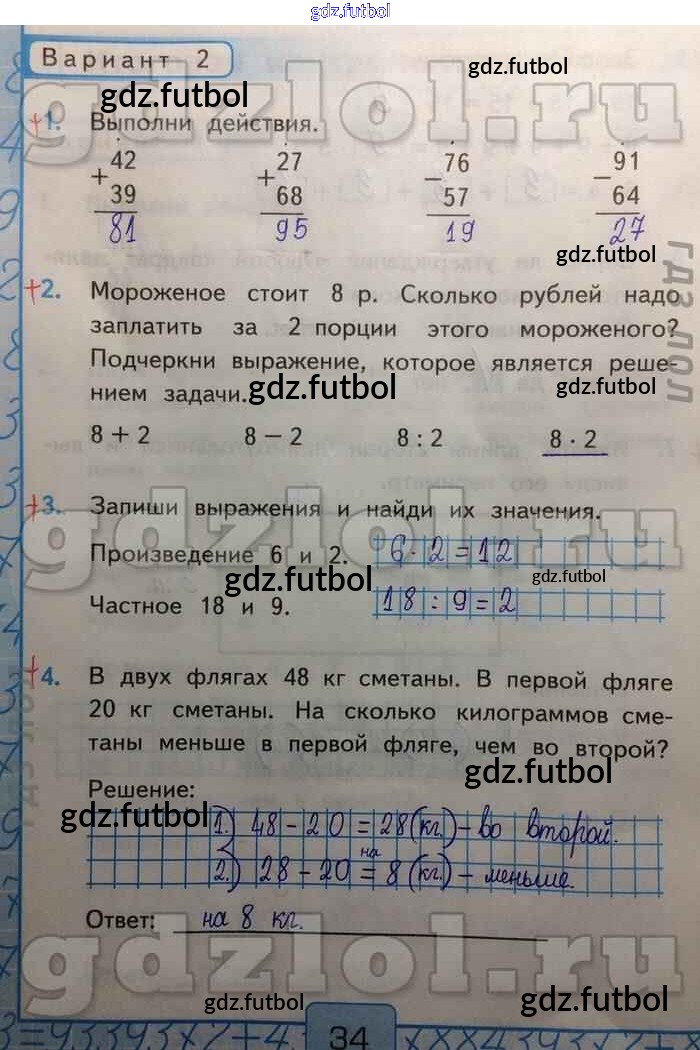 gdz.futbol
Вариант 2
gdz.futbol
gdz.futbol
gdzlol.ru
+1. Выполни действия.
+ 42 + 27 − 76 − 91
39 68 57 64
81 95 19 27
gdz.futbol
гдз лол
+2. Мороженое стоит 8 р. Сколько рублей надо
заплатить за 2 порции этого мороженого?
Подчеркни выражение, которое является реше-
нием задачи.
gdz.futbol
gdz.futbol
8 + 2 8 − 2 8 : 2 8 · 2
gdzlol.ru
+3. Запиши выражения и найди их значения.
Произведение 6 и 2. 6 · 2 = 12
gdz.futbol
gdz.futbol
Частное 18 и 9. 18 : 9 = 2
+4. В двух флягах 48 кг сметаны. В первой фляге
20 кг сметаны. На сколько килограммов сме-
таны меньше в первой фляге, чем во второй?
гдз лол
gdz.futbol
Решение:
gdz.futbol
1.) 48 − 20 = 28 (кг.) – во второй.
2.) 28 − 20 = на 8 (кг.) – меньше.
Ответ: на 8 кг.
gdzlol.ru
gdz.futbol
gdz.futbol
34